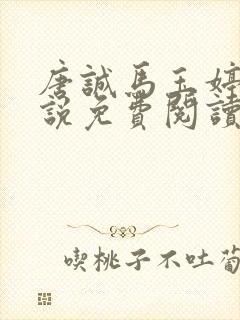 唐誠馬玉婷
說免費閱讀
喫桃子不吐葡